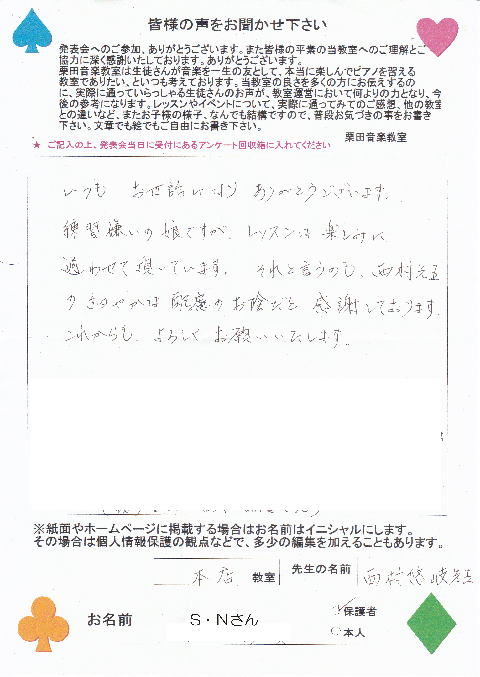 皆様の声をお聞かせ下さい
発表会へのご参加、ありがとうございます。また皆様の平素の当教室へのご理解とご
協力に深く感謝いたしております。ありがとうございます。
栗田音楽教室は生徒さんが音楽を一生の友として、本当に楽しんでピアノを習える
教室でありたい、といつも考えております。当教室の良さを多くの方にお伝えするの
に、実際に通っていらっしゃる生徒さんのお声が、教室運営において何よりの力となり、今
後の参考になります。レッスンやイベントについて、実際に通ってみてのご感想、他の教室
との違いなど、またお子様の様子、なんでも結構ですので、普段お気づきの事をお書き
下さい。文章でも絵でもご自由にお書き下さい。
栗田音楽教室
★ ご記入の上、発表会当日に受付にあるアンケート回収箱に入れてください
いつも お世話になり ありがとうございます。
練習嫌いの娘ですが、レッスンは楽しみに
通わせて頂いています。それと言うのも、西村先生
の きめやかな配慮のお陰だと 感謝しております。
これからも、よろしくお願いいたします。
※紙面やホームページに掲載する場合はお名前はイニシャルにします。
その場合は個人情報保護の観点などで、多少の編集を加えることもあります。
本店 教室 先生の名前 西村悠岐先生
お名前 S・Nさん
✓保護者
○本人